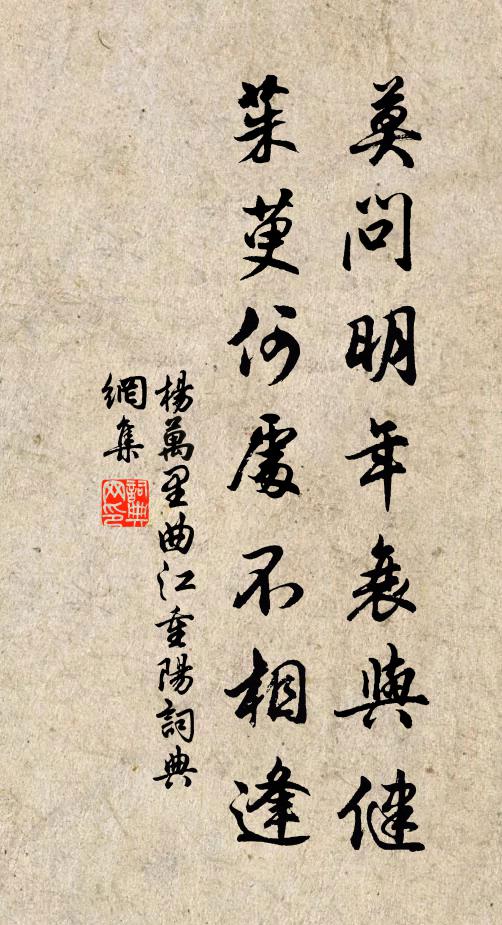 莫問明年衰與健
茱萸何處不相逢
楊萬里曲江重陽詞典
網集
詞典
网印